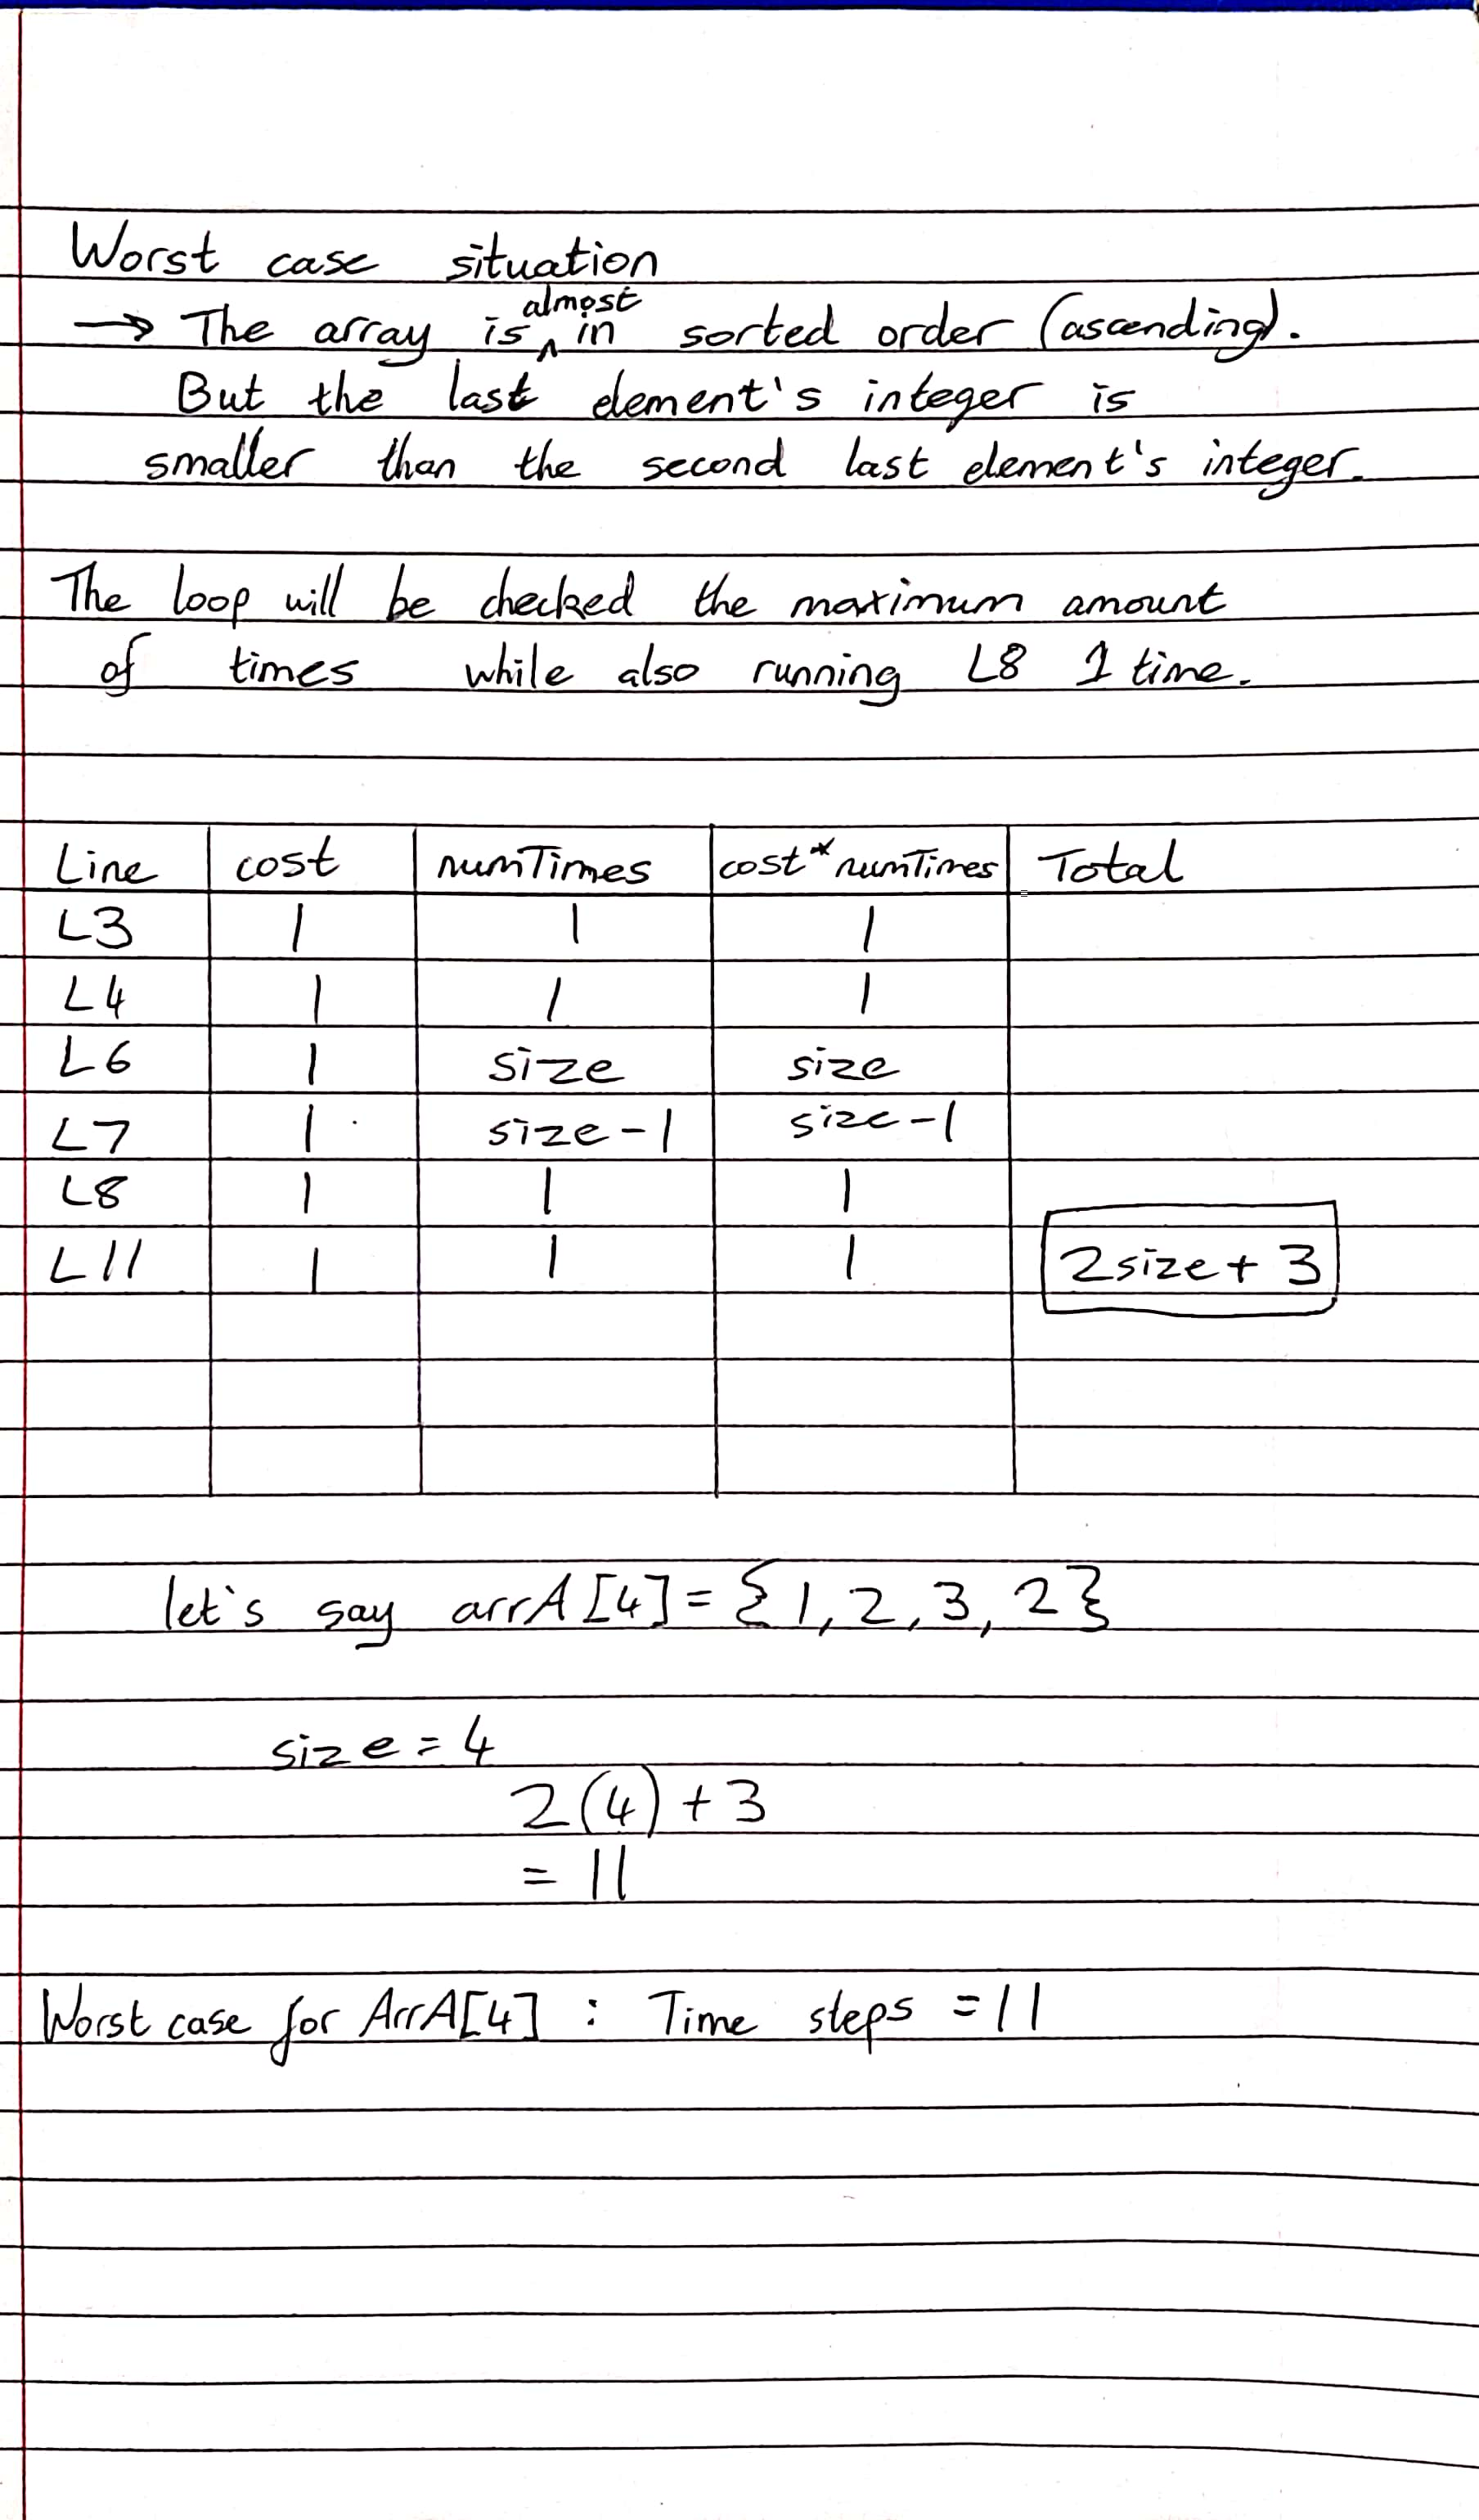 Worst case situation
→ The array is almost in sorted order (ascending).
But the last element's integer is
smaller than the second last element's integer.
The loop will be checked the maximum amount
of times while also running L8 1 time.
Line cost numTimes cost*numTimes Total
L3 1 1 1
L4 1 1 1
L6 1 size size
L7 1 size-1 size-1
L8 1 1 1
L11 1 1 1 2size+3
let's say arrA[4]={1,2,3,2}
size=4
2(4)+3
=11
Worst case for ArrA[4] : Time steps =11